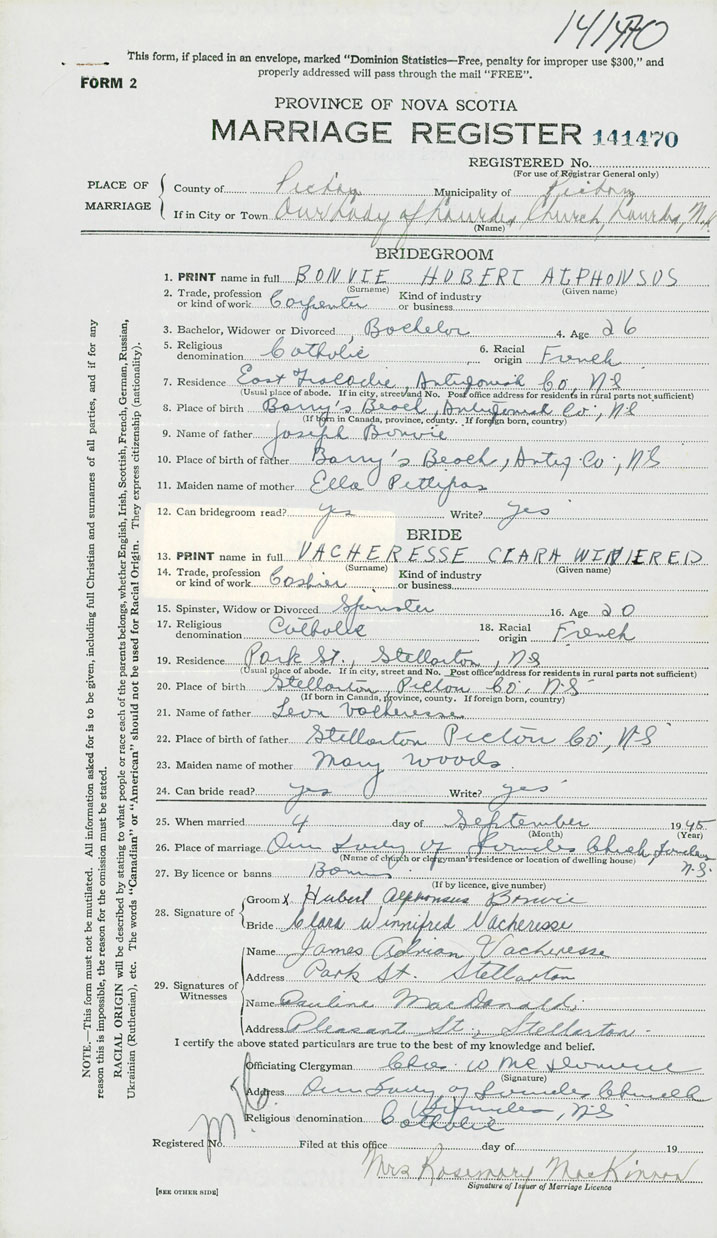 141470
This form, if placed in an envelope, marked "Dominion Statistics—Free, penalty for improper use $300," and
properly addressed will pass through the mail "FREE".
FORM 2
PROVINCE OF NOVA SCOTIA
MARRIAGE REGISTER 141470
REGISTERED No.
(For use of Registrar General only)
PLACE OF MARRIAGE
County of Pictou Municipality of Pictou
If in City or Town Our Lady of Lourdes Church, Lourdes, N.S.
(Name)
BRIDEGROOM
1. PRINT name in full BONVIE HUBERT ALPHONSUS
(Surname) (Given name)
2. Trade, profession or kind of work Carpenter Kind of industry or business
3. Bachelor, Widower or Divorced Bachelor 4. Age 26
5. Religious denomination Catholic 6. Racial origin French
7. Residence East Tracadie, Antigonish Co, NS
(Usual place of abode. If in city, street and No. Post office address for residents in rural parts not sufficient)
8. Place of birth Barry's Beach, Antigonish Co, NS
(If born in Canada, province, county. If foreign born, country)
9. Name of father Joseph Bonvie
10. Place of birth of father Barry's Beach, Antig. Co, NS
11. Maiden name of mother Ella Pettipas
12. Can bridegroom read? yes Write? yes
BRIDE
13. PRINT name in full VACHERESSE CLARA WINIFRED
(Surname) (Given name)
14. Trade, profession or kind of work Cashier Kind of industry or business
15. Spinster, Widow or Divorced Spinster 16. Age 20
17. Religious denomination Catholic 18. Racial origin French
19. Residence Park St., Stellarton, NS
(Usual place of abode. If in city, street and No. Post office address for residents in rural parts not sufficient)
20. Place of birth Stellarton, Pictou Co, NS
(If born in Canada, province, county. If foreign born, country)
21. Name of father Leon Vacheresse
22. Place of birth of father Stellarton Pictou Co, NS
23. Maiden name of mother Mary Woods
24. Can bride read? yes Write? yes
25. When married 4 day of September 1945
(Month) (Year)
26. Place of marriage Our Lady of Lourdes Church, Lourdes N.S.
(Name of church or clergyman's residence or location of dwelling house)
27. By licence or banns Banns
(If by licence, give number)
28. Signature of
Groom X Hubert Alphonsus Bonvie
Bride Clara Winnifred Vacheresse
29. Signatures of Witnesses
Name James Adrian Vacheresse
Address Park St. Stellarton
Name Pauline MacDonald
Address Pleasant St., Stellarton
I certify the above stated particulars are true to the best of my knowledge and belief.
Officiating Clergyman Chas. W
(Signature)
Address Our Lady of Lourdes Church
Lourdes, NS
Religious denomination Catholic
Registered No. Filed at this office day of 19
Mrs Rosemary MacKinnon
Signature of Issuer of Marriage Licence
[SEE OTHER SIDE]
NOTE.—This form must not be mutilated. All information asked for is to be given, including full Christian and surnames of all parties, and if for any
reason this is impossible, the reason for the omission must be stated.
RACIAL ORIGIN will be described by stating to what people or race each of the parents belongs, whether English, Irish, Scottish, French, German, Russian,
Ukrainian (Ruthenian), etc. The words "Canadian" or "American" should not be used for Racial Origin. They express citizenship (nationality).